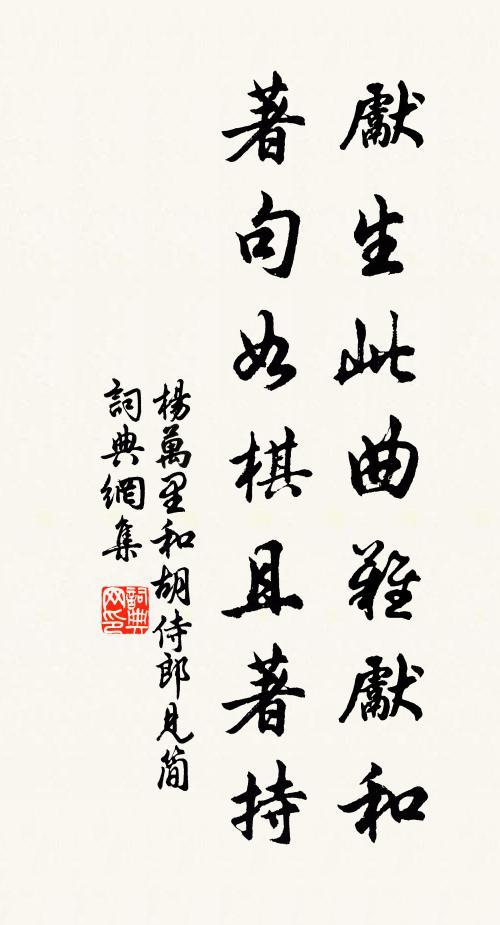 獻生此曲難獻和
著句如棋且著持
楊萬里和胡侍郎見簡
詞典網集
詞典
网印